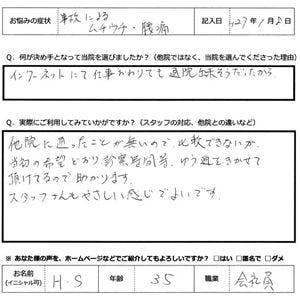 お悩みの症状 事故による
ムチウチ・腰痛 記入日 H27年1月5日
Q. 何が決め手となって当院を選びましたか？（他院ではなく、当院を選んでくださった理由）
インターネットにて仕事おわりでも通院出来そうだったから
Q. 実際にご利用してみていかがですか？（スタッフの対応、他院との違いなど）
他院に通ったことが無いので比較できないが、
当初の希望どおり診察時間等、ゆう通をきかせて
頂けてるので助かります。
スタッフさんもやさしい感じでよいです。
※ あなた様の声を、ホームページなどでご紹介してもよろしいですか？ □はい □匿名で □ダメ
お名前
（イニシャル可） H・S 年齢 35 職業 会社員